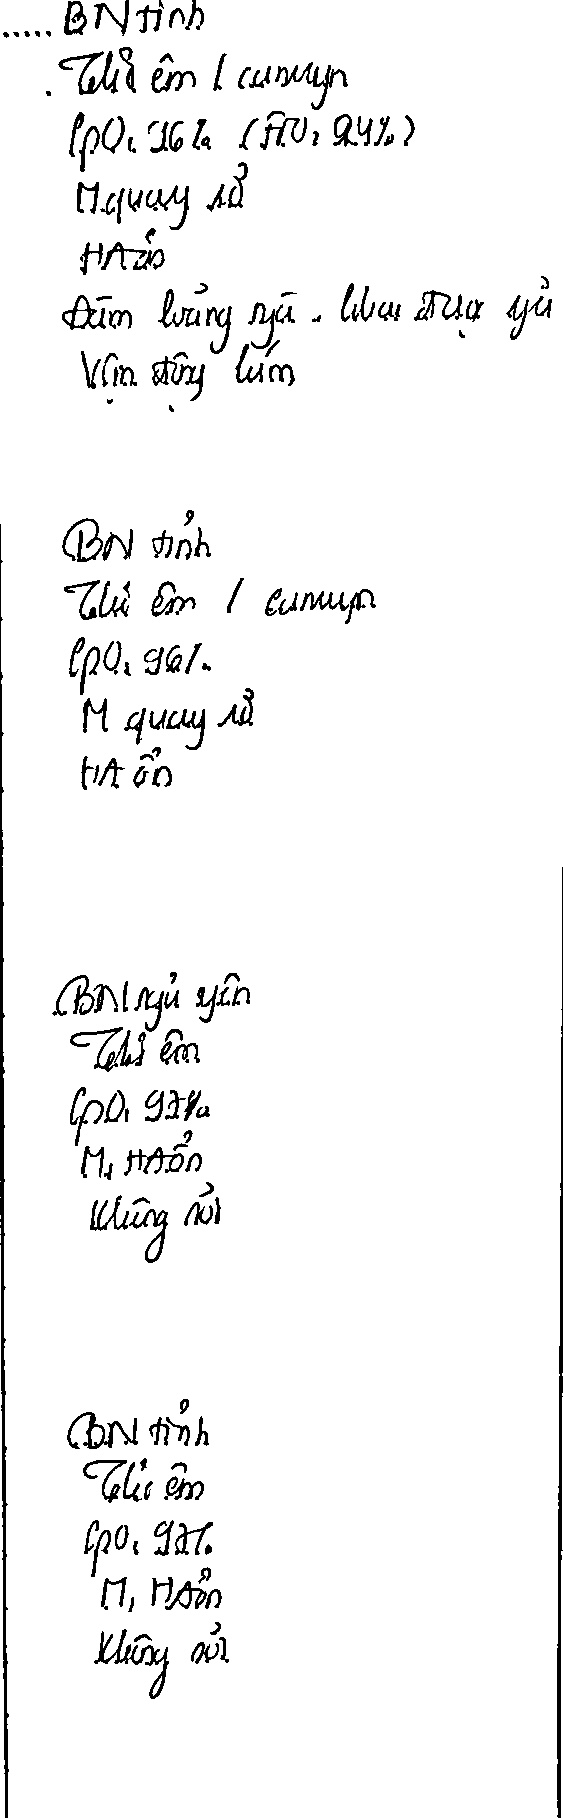 ..... BN tỉnh
Thở êm / canuyn
SpO₂ 96% (FiO₂ 24%)
M quay rõ
HA ổn
Đàm loãng ngà
Vận động kém
BN tỉnh
Thở êm / canuyn
SpO₂ 96%
M quay rõ
HA ổn
BN ngủ yên
Thở êm
SpO₂ 97%
M, HA ổn
Không sốt
BN tỉnh
Thở êm
SpO₂ 97%
M, HA ổn
Không sốt